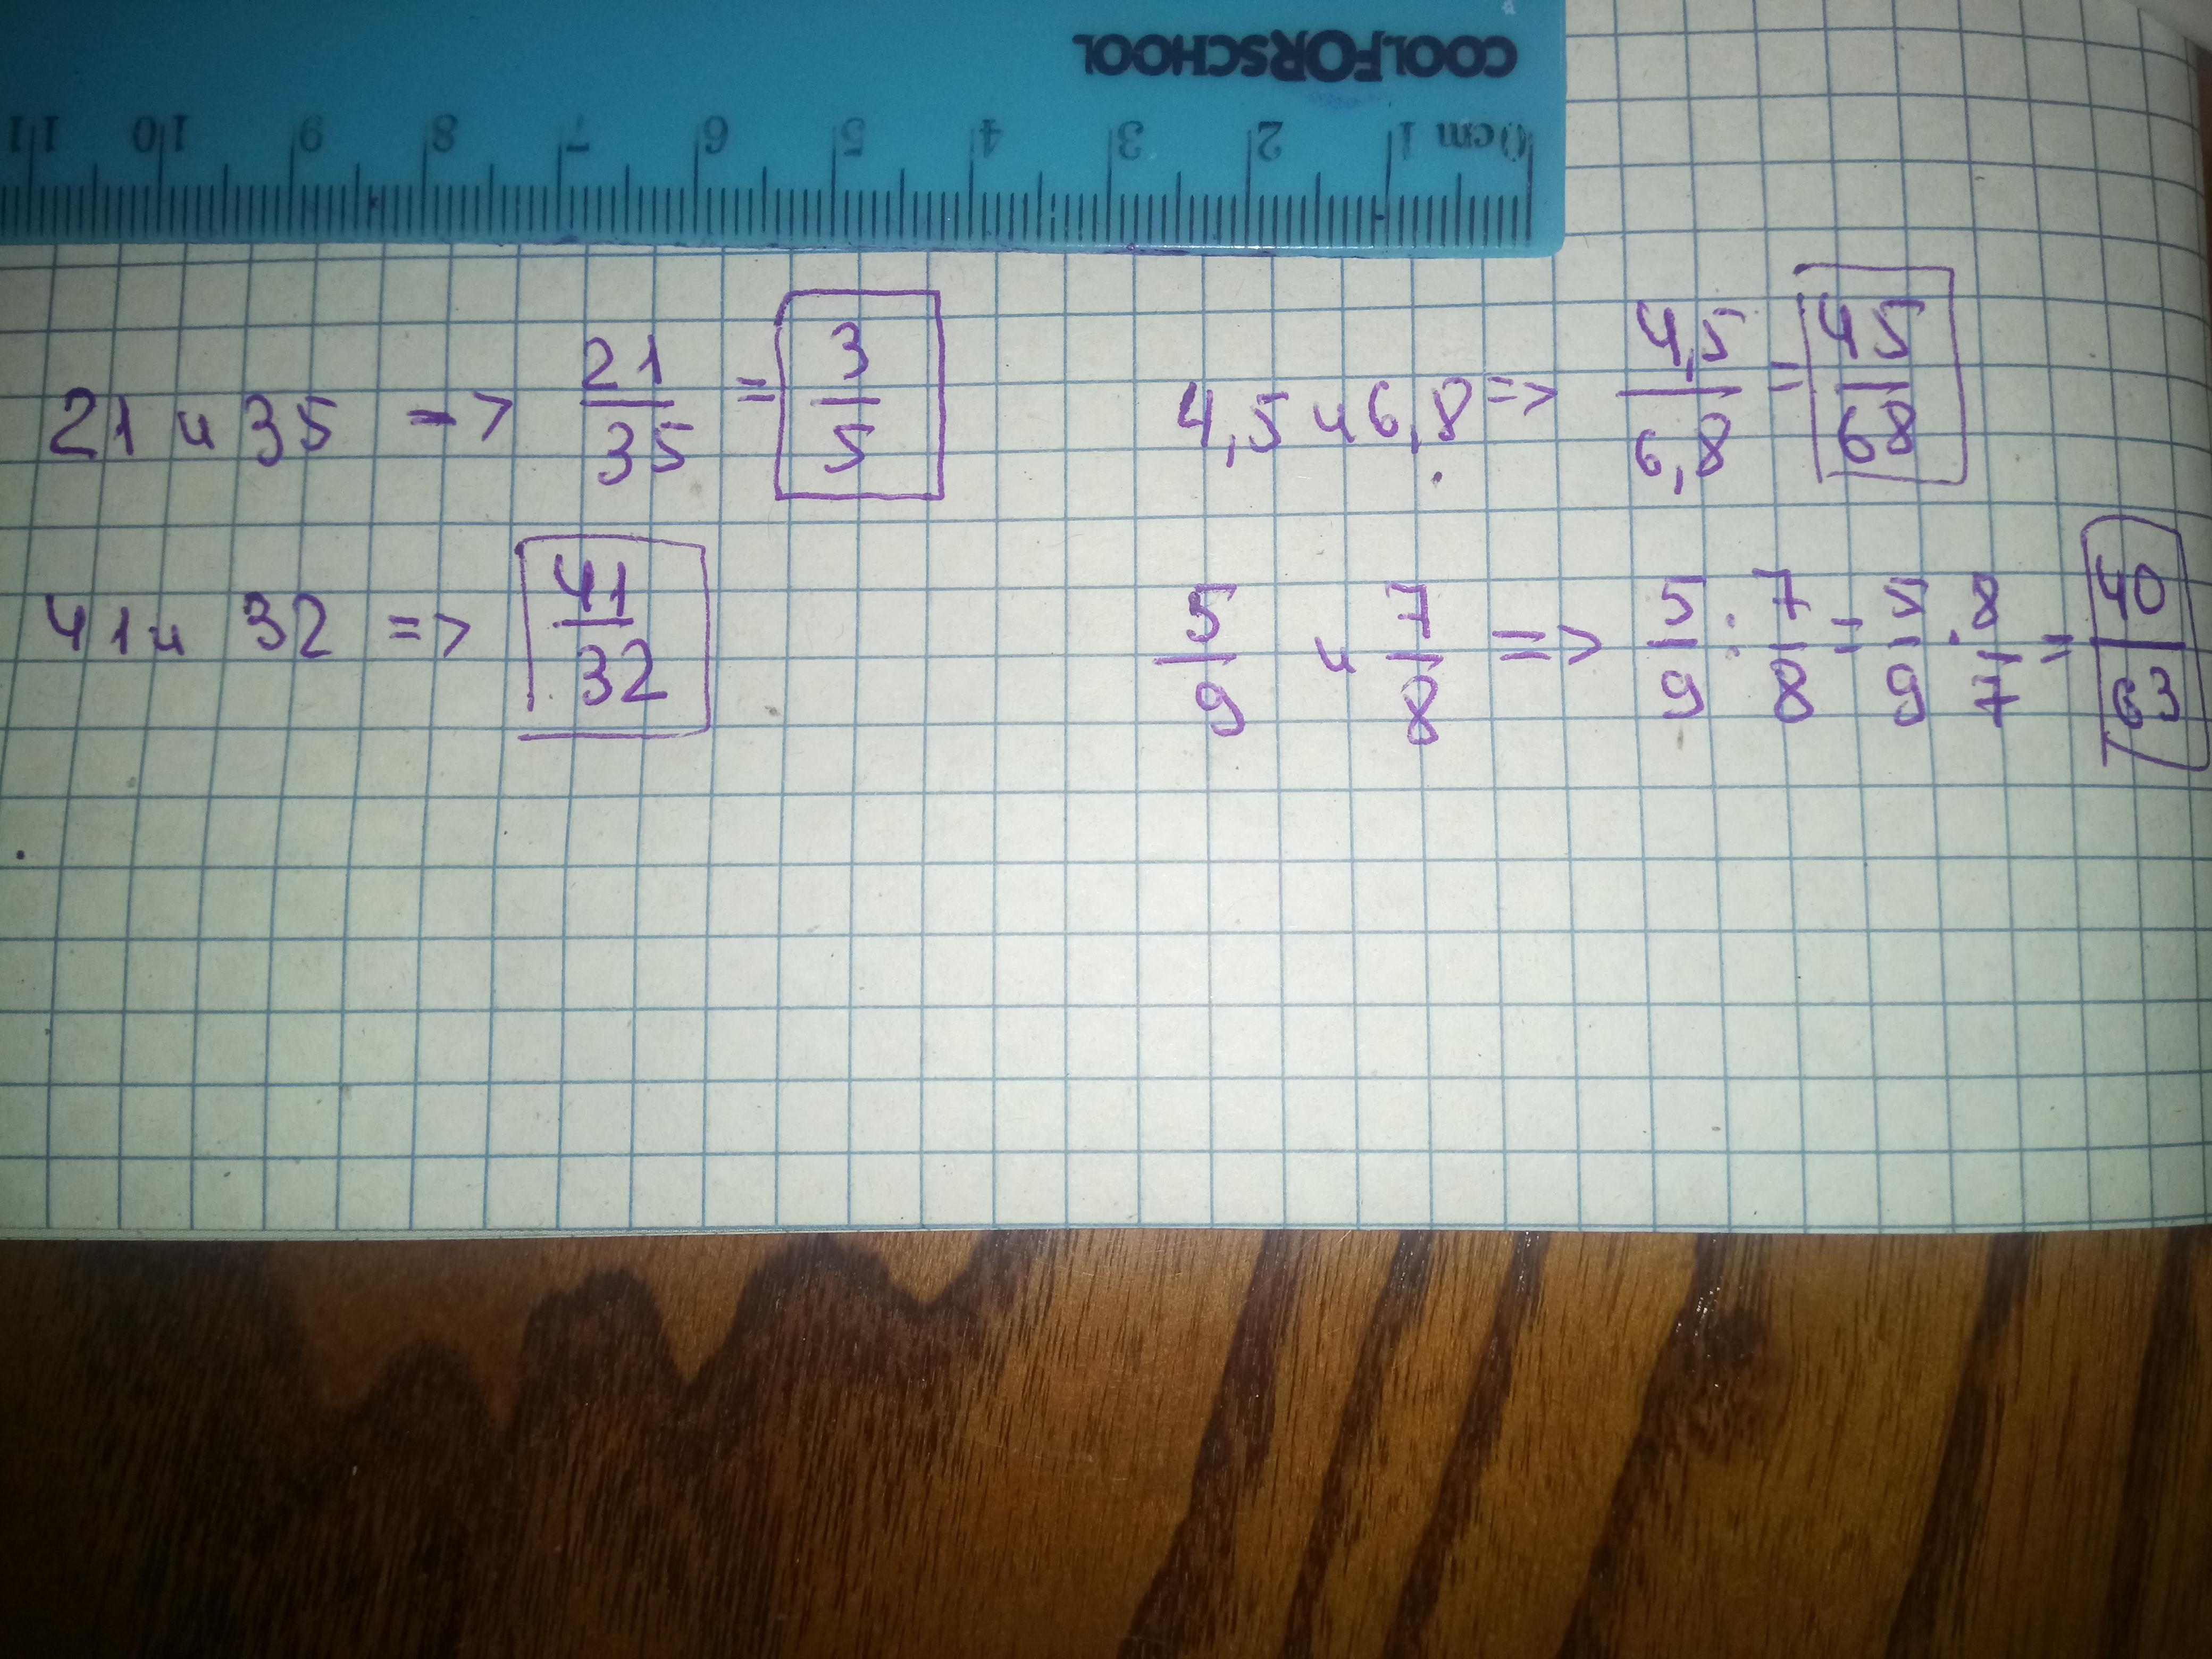 COOLFORSCHOOL
0cm 1 2 3 4 5 6 7 8 9 10 11
21 и 35 => 21/35 = 3/5
4,5 и 6,8 => 4,5/6,8 = 45/68
41 и 32 => 41/32
5/9 и 7/8 => 5/9 : 7/8 = 5/9 · 8/7 = 40/63